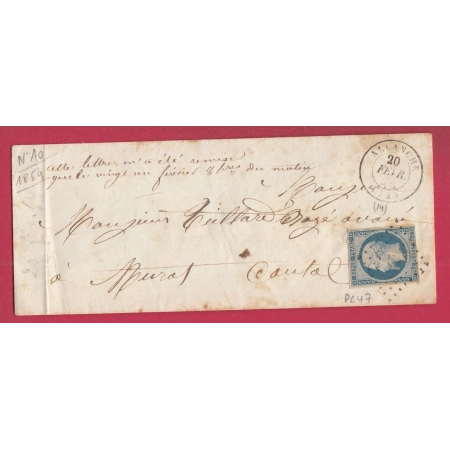 N° 10
1854
cette lettre m'a été remise
que le vingt un février 8 hres du matin
ALLANCHE
20
FEVR.
(14)
Monsieur
Monsieur Teillard Rozé avoué
à Murat Cantal
PC47